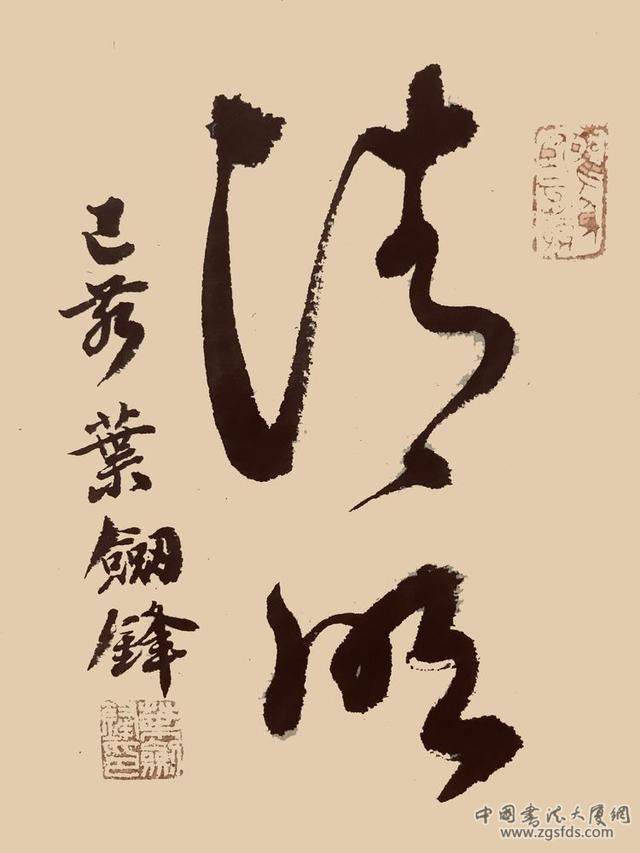 清明
己亥葉劍鋒
中国書法大厦網
www.zgsfds.com